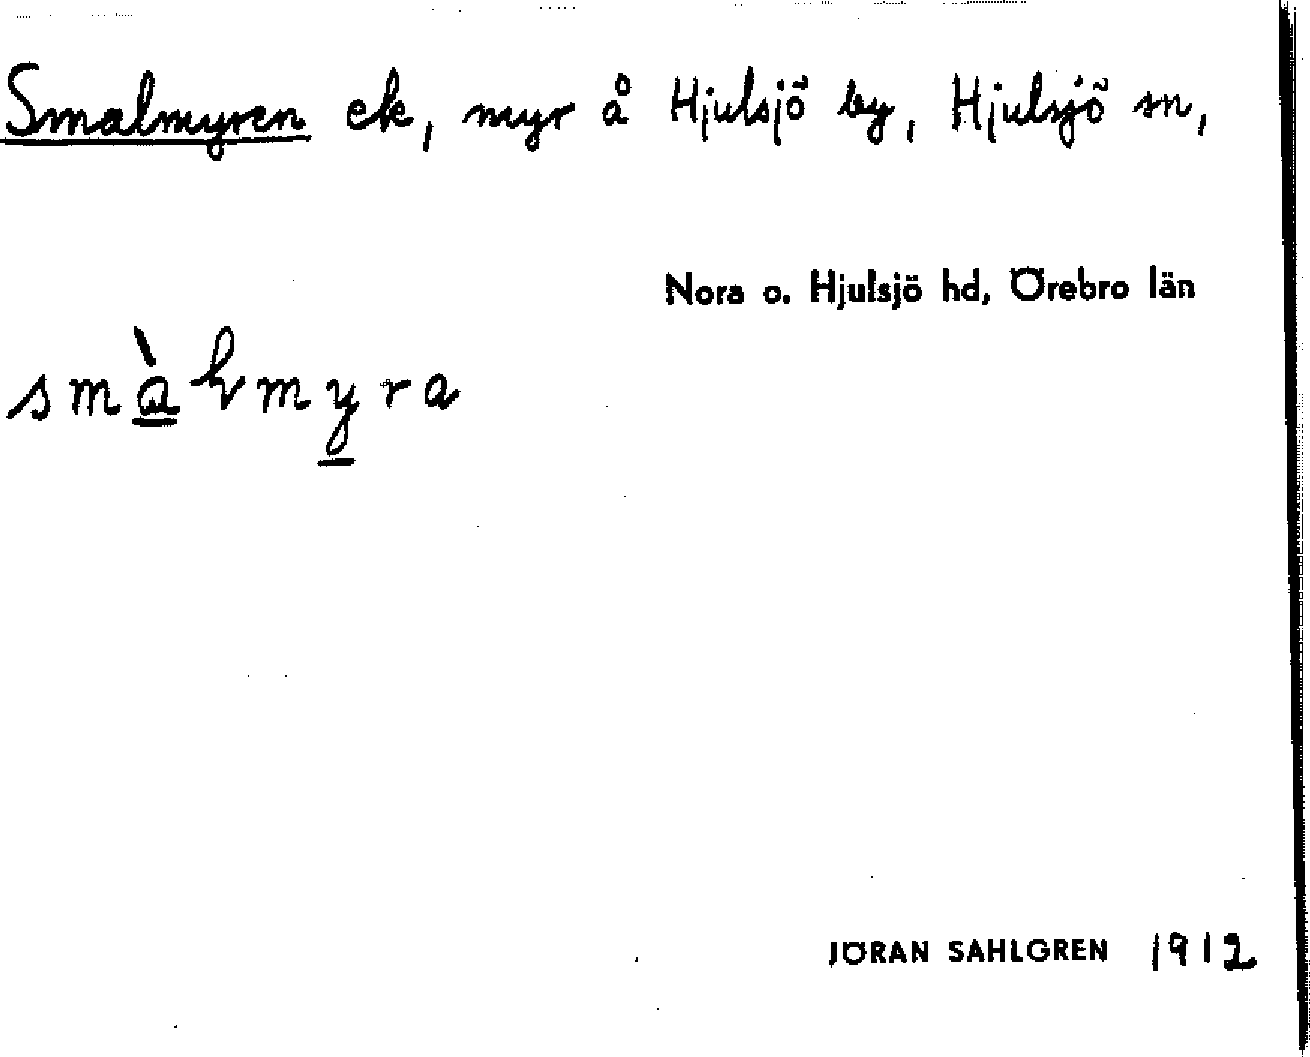 Smalmyren ek, myr å Hjulsjö by, Hjulsjö sn,
Nora o. Hjulsjö hd, Örebro län
JÖRAN SAHLGREN 1912